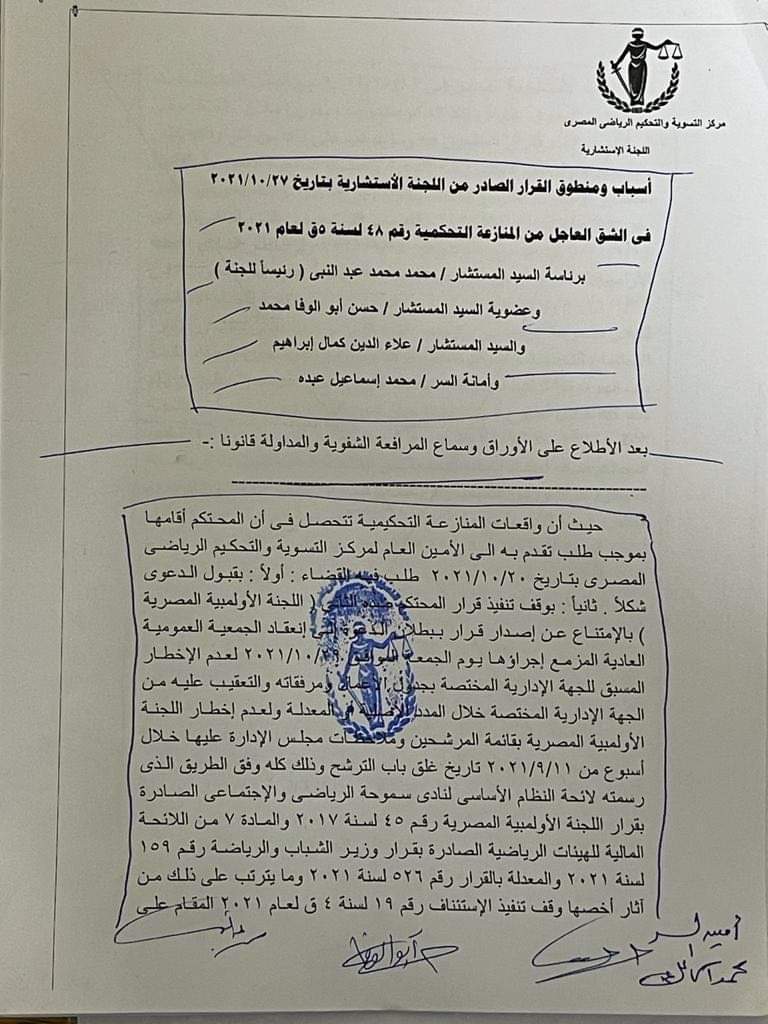 مركز التسوية والتحكيم الرياضى المصرى
اللجنة الإستشارية
أسباب ومنطوق القرار الصادر من اللجنة الأستشارية بتاريخ ٢٠٢١/١٠/٢٧
فى الشق العاجل من المنازعة التحكمية رقم ٤٨ لسنة ٥ق لعام ٢٠٢١
برئاسة السيد المستشار / محمد محمد عبد النبى ( رئيساً للجنة )
وعضوية السيد المستشار / حسن أبو الوفا محمد
والسيد المستشار / علاء الدين كمال إبراهيم
وأمانة السر / محمد إسماعيل عبده
بعد الأطلاع على الأوراق وسماع المرافعة الشفوية والمداولة قانونا :-
حيث أن واقعات المنازعة التحكيمية تتحصل فى أن المحتكم أقامها
بموجب طلب تقدم به الى الأمين العام لمركز التسوية والتحكيم الرياضى
المصرى بتاريخ ٢٠٢١/١٠/٢٠ طلب فيه القضاء : أولاً : بقبول الدعوى
شكلاً . ثانياً : بوقف تنفيذ قرار المحتكم ضده الثانى ( اللجنة الأولمبية المصرية
) بالإمتناع عن إصدار قرار ببطلان الدعوة إلى إنعقاد الجمعية العمومية
العادية المزمع إجراؤها يوم الجمعة الموافق ٢٠٢١/١٠/٢٩ لعدم الإخطار
المسبق للجهة الإدارية المختصة بجدول الأعمال ومرفقاته والتعقيب عليه من
الجهة الإدارية المختصة خلال المدد المعدلة ولعدم إخطار اللجنة
الأولمبية المصرية بقائمة المرشحين وملاحظات مجلس الإدارة عليها خلال
أسبوع من ٢٠٢١/٩/١١ تاريخ غلق باب الترشح وذلك كله وفق الطريق الذى
رسمته لائحة النظام الأساسى لنادى سموحة الرياضى والإجتماعى الصادرة
بقرار اللجنة الأولمبية المصرية رقم ٤٥ لسنة ٢٠١٧ والمادة ٧ من اللائحة
المالية للهيئات الرياضية الصادرة بقرار وزير الشباب والرياضة رقم ١٥٩
لسنة ٢٠٢١ والمعدلة بالقرار رقم ٥٢٦ لسنة ٢٠٢١ وما يترتب على ذلك من
آثار أخصها وقف تنفيذ الإستئناف رقم ١٩ لسنة ٤ ق لعام ٢٠٢١ المقام على
أمين السر